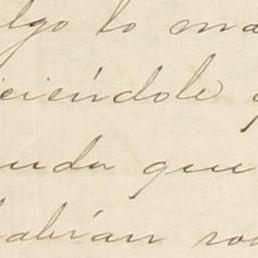 algo lo ma
iciéndole q
uda que
habían ro